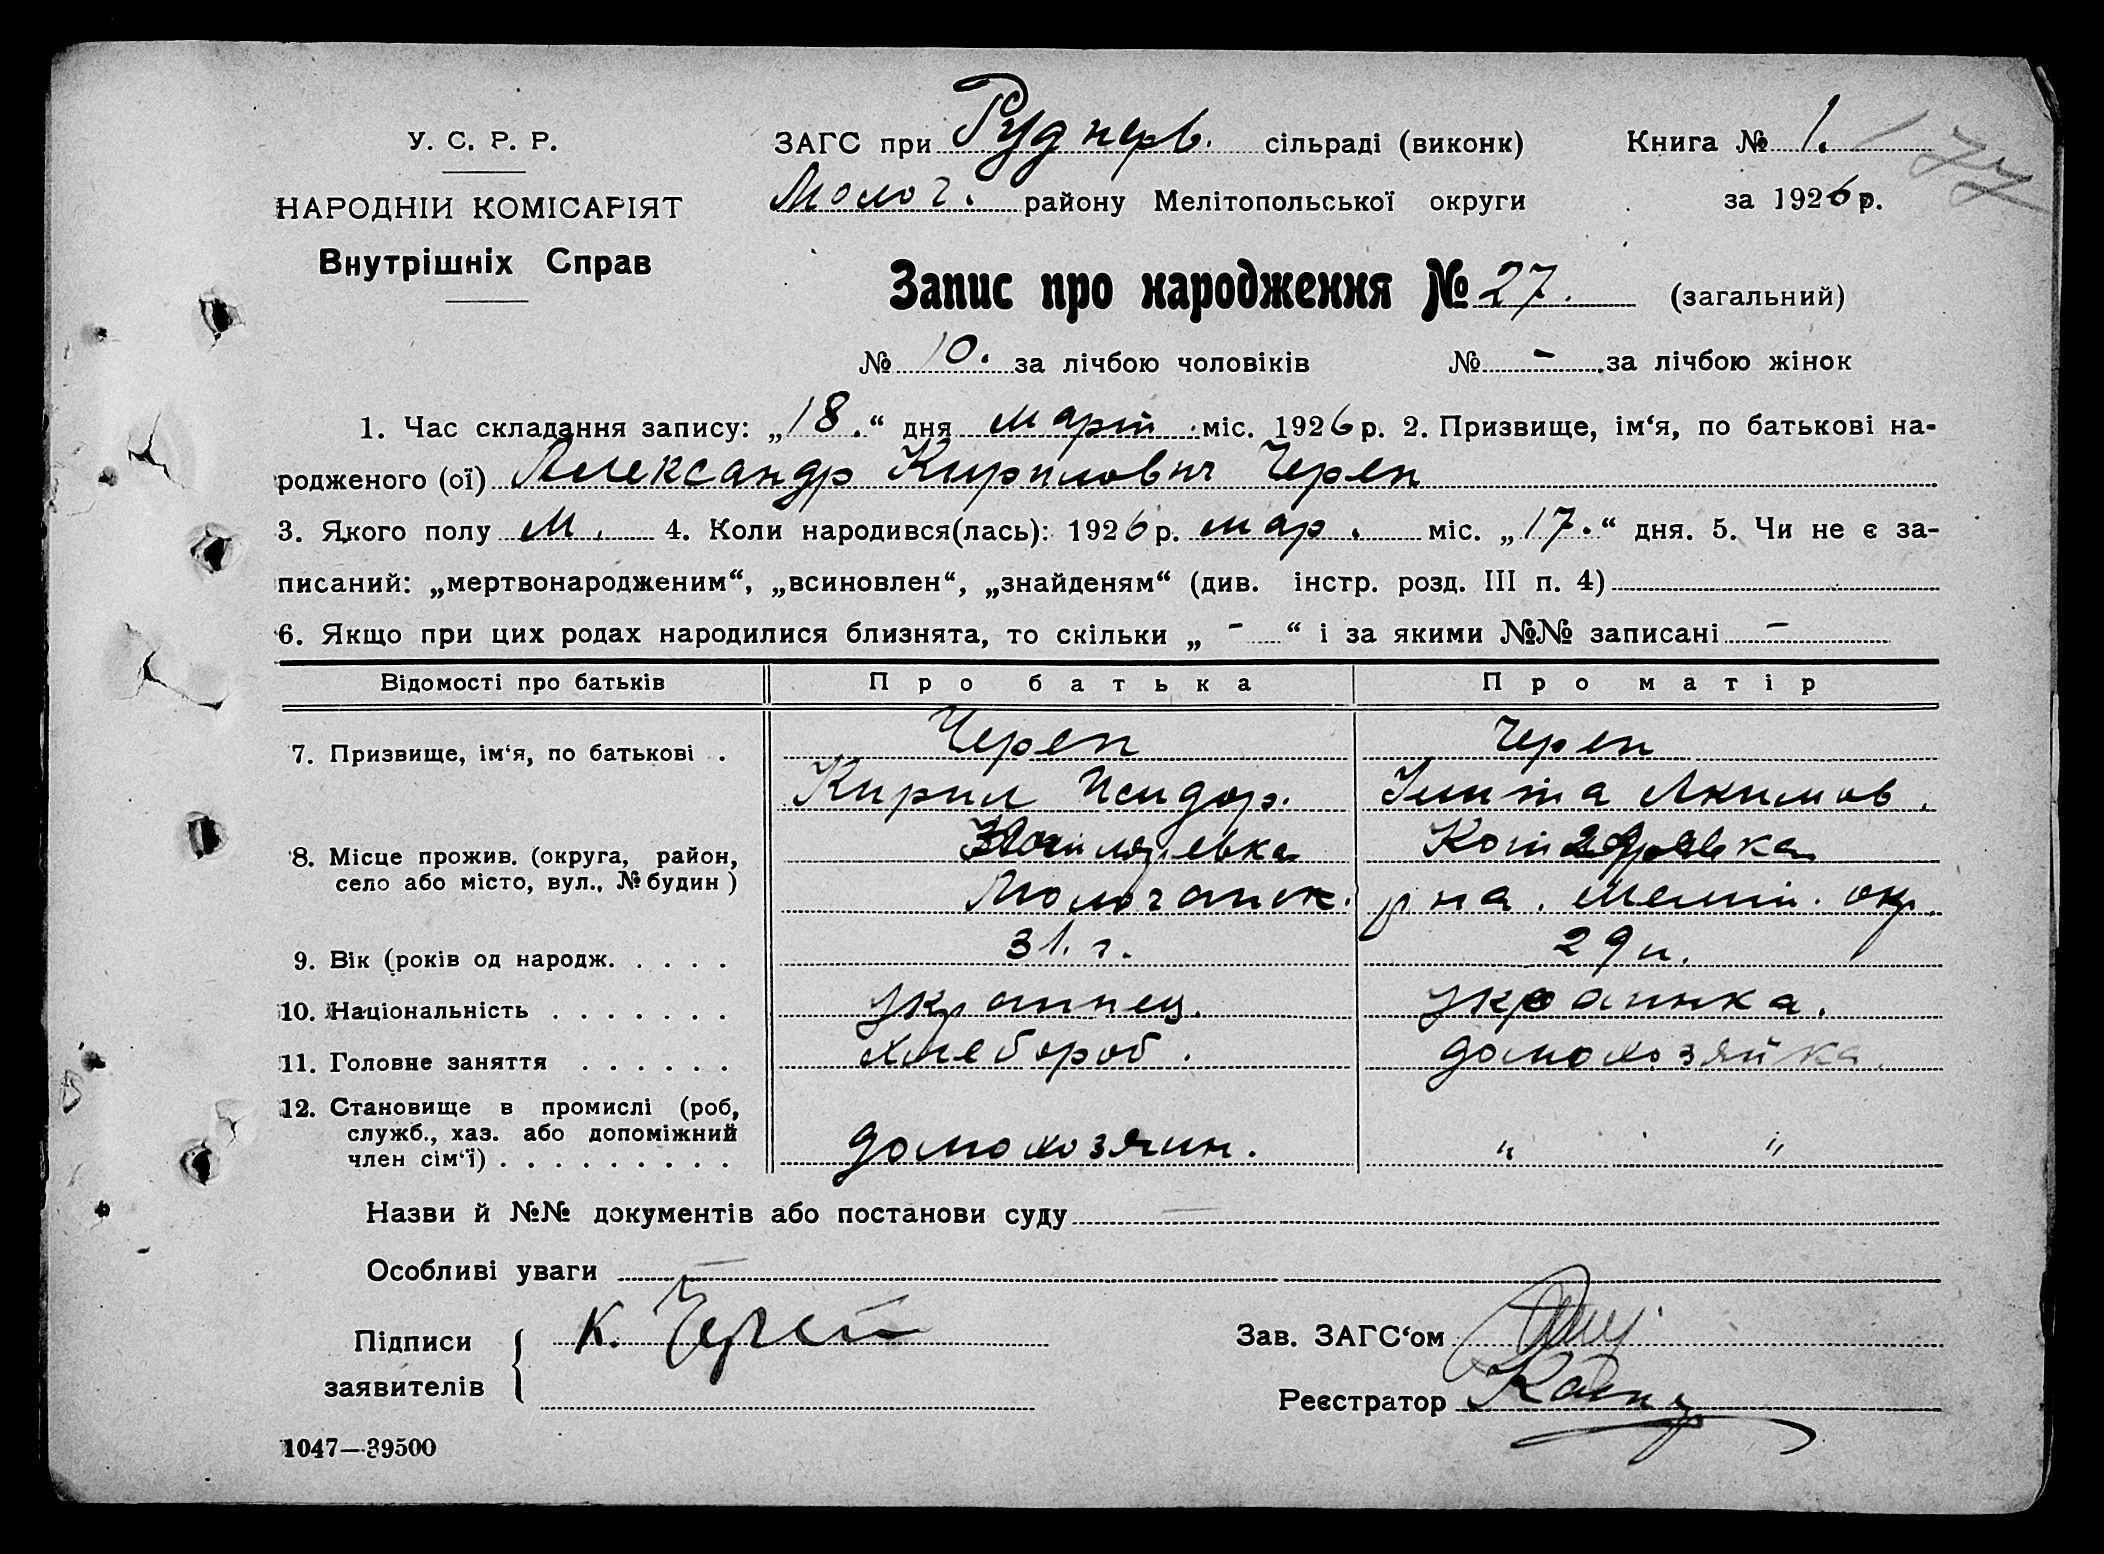 У. С. Р. Р.
НАРОДНІЙ КОМІСАРІЯТ
Внутрішніх Справ
ЗАГС при Руднерв. сільраді (виконк)
Молоч. району Мелітопольської округи
Книга № 1.
177
за 1926 р.
Запис про народження № 27. (загальний)
№ 10. за лічбою чоловіків № - за лічбою жінок
1. Час складання запису: „18.“ дня март міс. 1926 р. 2. Призвище, ім‘я, по батькові на-
родженого (ої) Александр Кирилович Череп
3. Якого полу М. 4. Коли народився(лась): 1926 р. мар. міс. „17.“ дня. 5. Чи не є за-
писаний: „мертвонародженим“, „всиновлен“, „знайденям“ (див. інстр. розд. III п. 4)
6. Якщо при цих родах народилися близнята, то скільки „ - “ і за якими №№ записані -
Відомості про батьків Про батька Про матір
7. Призвище, ім‘я, по батькові . Череп Череп
Кирил Исидор. Улита Акимов.
8. Місце прожив. (округа, район,
село або місто, вул., № будин)
Молочанск. р на. Мелит. окр.
9. Вік (років од народж. . . . . 31. г. 29 л.
10. Національність . . . . . . . украинец. украинка.
11. Головне заняття . . . . . . хлебороб. домохозяйка.
12. Становище в промислі (роб,
служб., хаз. або допоміжний
член сім‘ї) . . . . . . . . . домохозяин. " "
Назви й №№ документів або постанови суду
Особливі уваги
Підписи
заявителів
К. Череп
Зав. ЗАГС‘ом
Реєстратор
1047—39500